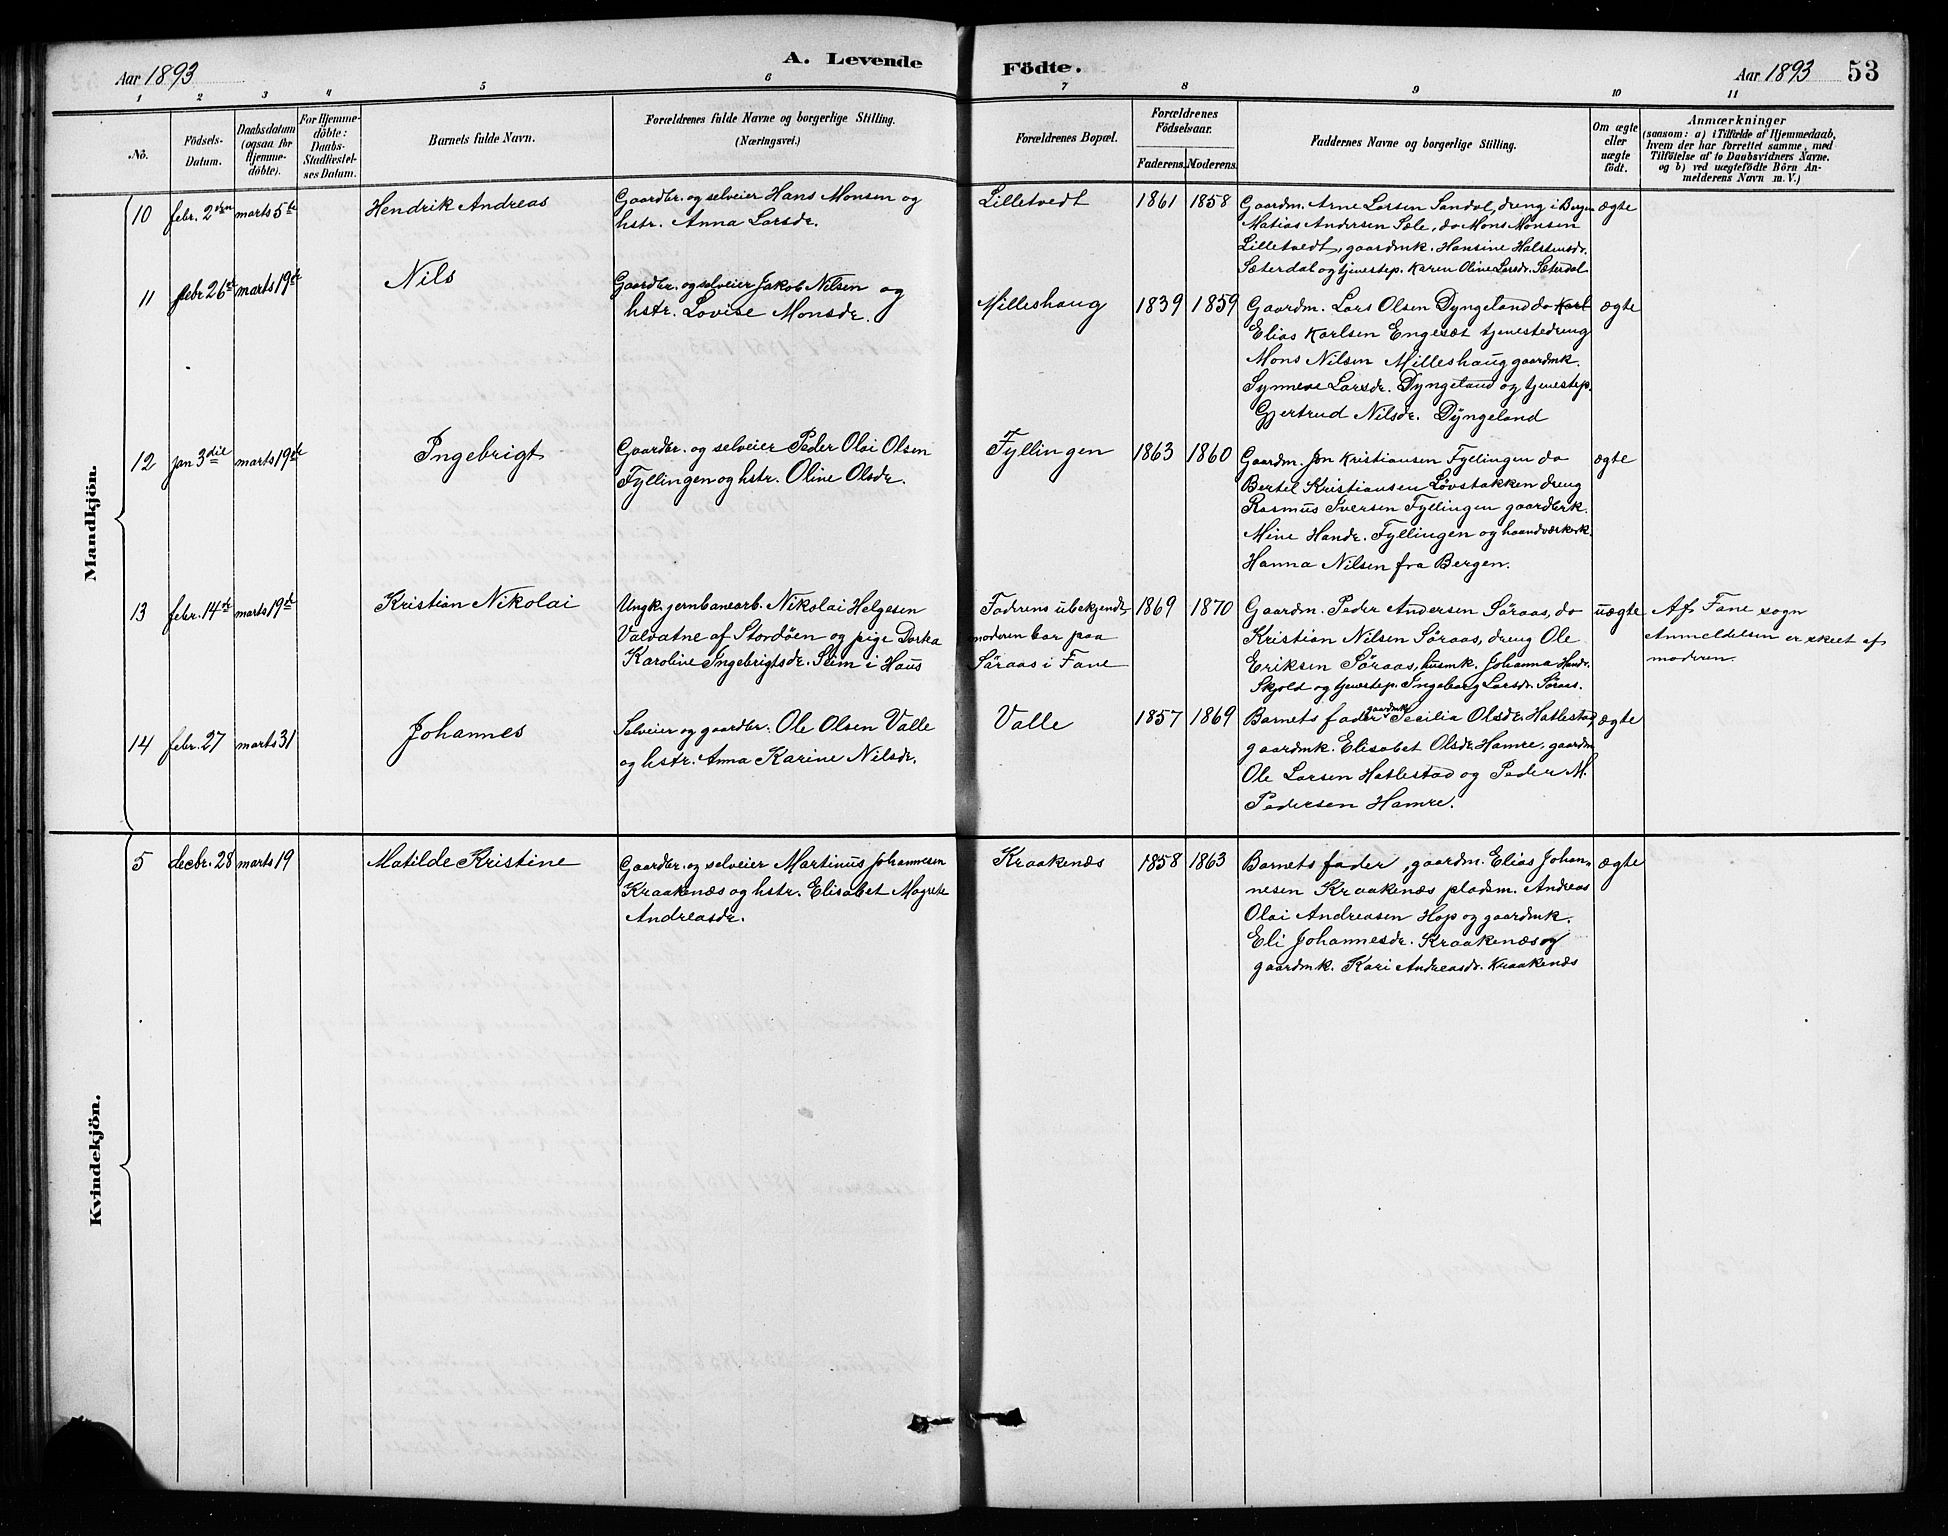 Aar 1893
A. Levende
Födte.
Aar 1893
53
1 2 3 4 5 6 7 8 9 10 11
No.
Födsels-
Datum.
Daabsdatum
(ogsaa for
Hjemme-
döbte).
For Hjemme-
döbte:
Daabs-
Stadfæstel-
ses Datum.
Barnets fulde Navn.
Forældrenes fulde Navne og borgerlige Stilling.
(Næringsvei.)
Forældrenes Bopæl.
Forældrenes
Födselsaar.
Faderens. Moderens.
Faddernes Navne og borgerlige Stilling.
Om ægte
eller
uægte
födt.
Anmærkninger
(saasom: a) i Tilfælde af Hjemmedaab,
hvem der har forrettet samme, med
Tilföielse af to Daabsvidners Navne.
og b) ved uægtefödte Börn An-
melderens Navn m. V.)
Mandkjön.
10
febr. 2den
marts 5te
Hendrik Andreas
Gaardbr. og selveier Hans Monsen og
hstr. Anna Larsdr.
Lilletvedt
1861
1858
Gaardm. Arne Larsen Sandal, dreng i Bergen
Matias Andersen Sæle, do Mons Monsen
Lilletvedt, gaardmk. Hansine Halstensdr.
Sæterdal og tjenestep. Karen Oline Larsdr. Sæterdal
ægte
11
febr 26de
marts 19de
Nils
Gaardbr. og selveier Jakob Nilsen og
hstr. Lovise Monsdr.
Milleshaug
1839
1859
Gaardm. Lars Olsen Dyngeland do Karl
Elias Karlsen Engesæt tjenestedreng
Mons Nilsen Milleshaug gaardmk.
Synneve Larsdr. Dyngeland og tjenestep.
Gjertrud Nilsdr. Dyngeland
ægte
12
jan 3die
marts 19de
Ingebrigt
Gaardbr. og selveier Peder Olai Olsen
Fyllingen og hstr. Oline Olsdr.
Fyllingen
1863
1860
Gaardm. Jon Kristiansen Fyllingen do
Bertel Kristiansen Løvstakken dreng
Rasmus Iversen Fyllingen gaardbrk.
Mine Hansdr. Fyllingen og haandværkerk.
Hanna Nilsen fra Bergen.
ægte
13
febr. 14de
marts 19de
Kristian Nikolai
Ungk. jernbanearb. Nikolai Helgesen
Valvatne af Stordöen og pige Dorka
Karoline Ingebrigtsdr. Seim i Haus
Faderens ubekjendt,
moderen bor paa
Søraas i Fane
1869
1870
Gaardm. Peder Andersen Søraas, do
Kristian Nilsen Søraas, dreng Ole
Eriksen Søraas, husmk. Johanna Hansdr.
Skjold og tjenestep. Ingeborg Larsdr. Søraas.
uægte
Af Fane sogn
Anmeldelsen er skeet af
moderen.
14
febr. 27
marts 31
Johannes
Selveier og gaardbr. Ole Olsen Valle
og hstr. Anna Karine Nilsdr.
Valle
1857
1869
Barnets fader gaardmk. Cecilia Olsdr. Hatlestad
gaardmk. Elisabet Olsdr. Hamre, gaardm
Ole Larsen Hatlestad og Peder M.
Pedersen Hamre.
ægte
Kvindekjön.
5
decbr. 28
marts 19
Matilde Kristine
Gaardbr. og selveier Martinus Johannesen
Kraakenæs og hstr. Elisabet Magrete
Andreasdr.
Kraakenæs
1858
1863
Barnets fader, gaardm. Elias Johan-
nesen Kraakenæs pladsm. Andreas
Olai Andreasen Hop og gaardmk.
Eli Johannesdr. Kraakenæs og
gaardmk. Kari Andreasdr. Kraakenæs
ægte